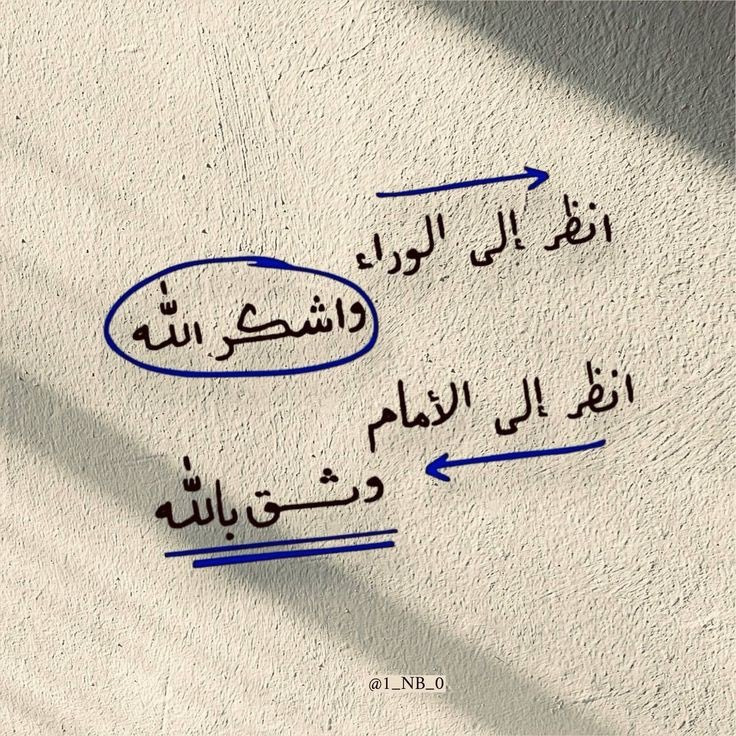 انظر إلى الوراء
واشكر الله
انظر إلى الأمام
وثق بالله
@1_NB_0